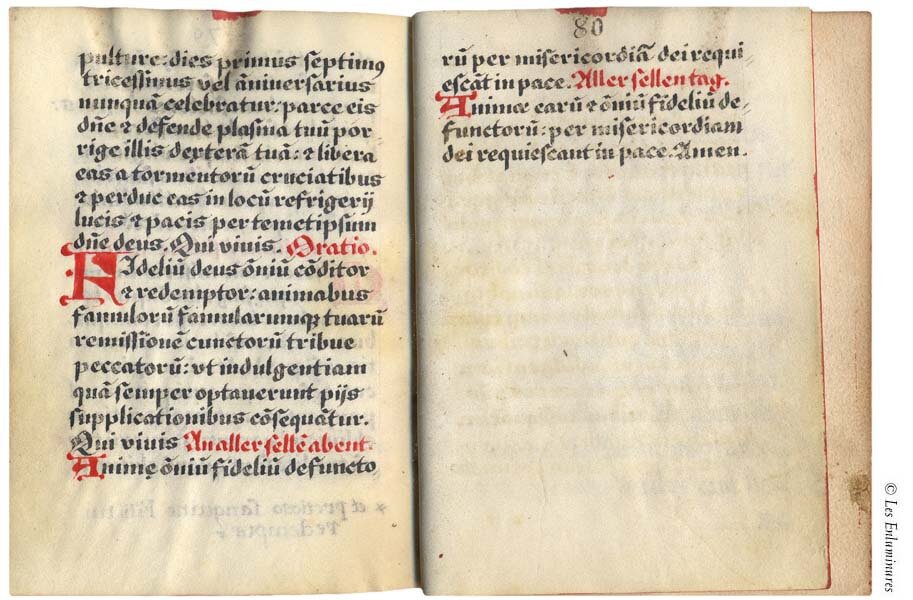 pulture: dies primus septimꝰ
tricessimus vel ān̄iversarius
nunquā celebratur: parce eis
dn̄e ⁊ defende plasma tuū por-
rige illis dexterā tuā: ⁊ libera
eas a tormentorū cruciatibus
⁊ perduc eas in locū refrigerij
lucis ⁊ pacis per temetipsum
dn̄e deus. Qui vivis. Oratio.
Fideliū deus ōniū cōditor
⁊ redemptor: animabus
famulorū famularumqꝫ tuarū
remissionē cunctorū tribue
peccatorū: vt indulgentiam
quā semper optauerunt pijs
supplicationibus cōsequātur.
Qui vivis An aller sellē abent.
Animę ōniū fideliū defuncto
80
rū per misericordiā dei requi-
escāt in pace. Aller sellen tag.
Animæ earū ⁊ ōniū fideliū de-
functorū: per misericordiam
dei requiescant in pace. Amen.
© Les Enluminures